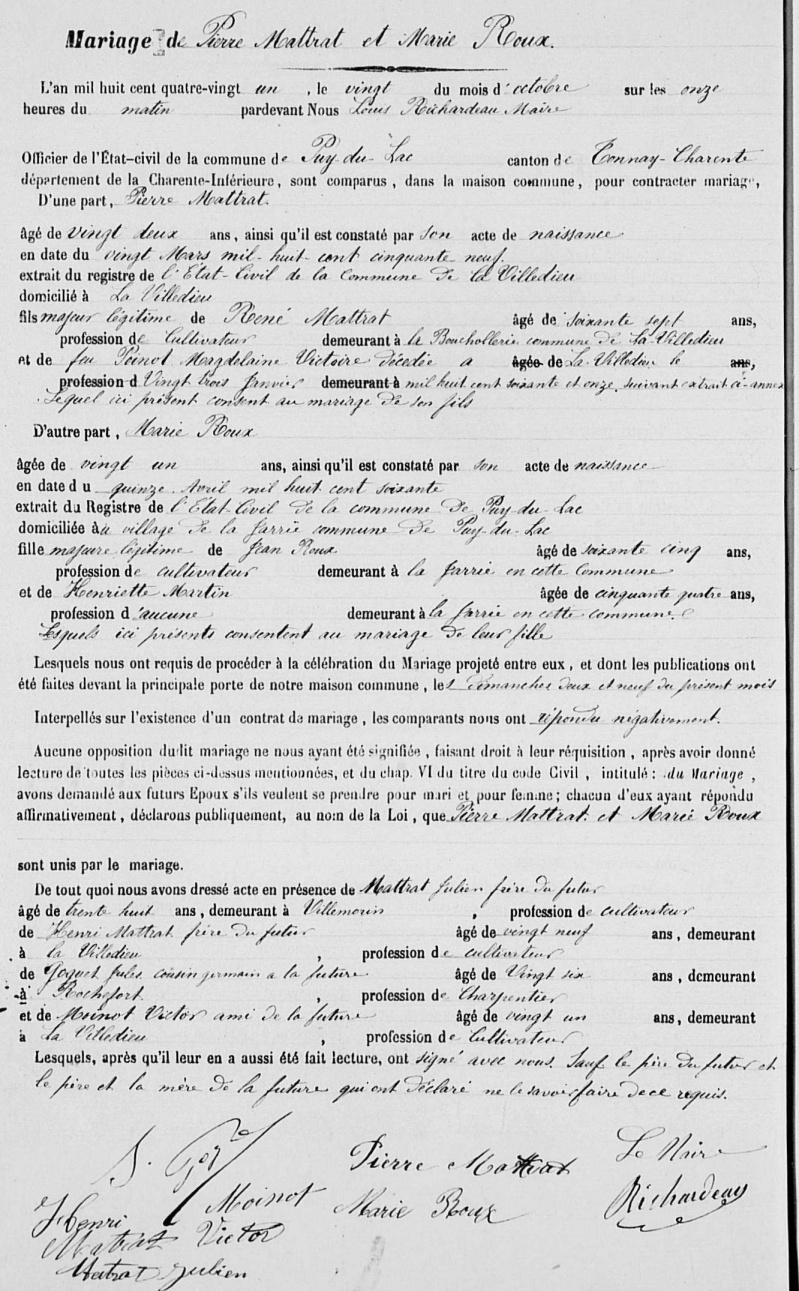 Mariage de Pierre Mattrat et Marie Roux.
L'an mil huit cent quatre-vingt un, le vingt du mois d'octobre sur les onze
heures du matin pardevant Nous Louis Richardeau Maire
Officier de l'État-civil de la commune de Puy-du-Lac canton de Tonnay-Charente
département de la Charente-Inférieure, sont comparus, dans la maison commune, pour contracter mariage,
D'une part, Pierre Mattrat.
âgé de vingt deux ans, ainsi qu'il est constaté par son acte de naissance
en date du vingt Mars mil-huit-cent cinquante neuf.
extrait du registre de l'Etat-Civil de la Commune de la Villedieu
domicilié à La Villedieu
fils majeur légitime de René Mattrat âgé de soixante sept ans,
profession de Cultivateur demeurant à la Bouchollerie commune de La Villedieu
et de feu Poinot Magdelaine Victoire décédée a âgée de La Villedieu le ans,
profession d Vingt trois Janvier demeurant à mil huit cent soixante et onze, suivant extrait ci-annexé
Lequel ici présent consent au mariage de son fils
D'autre part, Marie Roux
âgée de vingt un ans, ainsi qu'il est constaté par son acte de naissance
en date du quinze Avril mil huit cent soixante
extrait du Registre de l'Etat-Civil de la commune de Puy-du-Lac
domiciliée au village de la Jarrie commune de Puy-du-Lac
fille majeure légitime de Jean Roux âgé de soixante cinq ans,
profession de cultivateur demeurant à la Jarrie en cette Commune
et de Henriette Martin âgée de cinquante quatre ans,
profession d'aucune demeurant à la Jarrie en cette commune.
Lesquels ici présents consentent au mariage de leur fille
Lesquels nous ont requis de procéder à la célébration du Mariage projeté entre eux, et dont les publications ont
été faites devant la principale porte de notre maison commune, les dimanches deux et neuf du présent mois
Interpellés sur l'existence d'un contrat de mariage, les comparants nous ont répondu négativement.
Aucune opposition dudit mariage ne nous ayant été signifiée, faisant droit à leur réquisition, après avoir donné
lecture de toutes les pièces ci-dessus mentionnées, et du chap. VI du titre du code Civil, intitulé : du Mariage,
avons demandé aux futurs Epoux s'ils veulent se prendre pour mari et pour femme ; chacun d'eux ayant répondu
affirmativement, déclarons publiquement, au nom de la Loi, que Pierre Mattrat et Marie Roux
sont unis par le mariage.
De tout quoi nous avons dressé acte en présence de Mattrat Julien frère du futur
âgé de trente huit ans, demeurant à Villemorin, profession de cultivateur
de Henri Mattrat frère du futur âgé de vingt neuf ans, demeurant
à la Villedieu, profession de cultivateur
de Goguet Jules cousin germain a la future âgé de Vingt six ans, demeurant
à Rochefort, profession de Charpentier
et de Moinot Victor ami de la future âgé de vingt un ans, demeurant
a La Villedieu, profession de Cultivateur
Lesquels, après qu'il leur en a aussi été fait lecture, ont signé avec nous. Sauf le père du futur et
le père et la mère de la future qui ont déclaré ne le savoir faire de ce requis.
Pierre Mattrat
Le Maire
Moinot
Marie Roux
Richardeau
Henri
Mattrat Victor
Matrat Julien